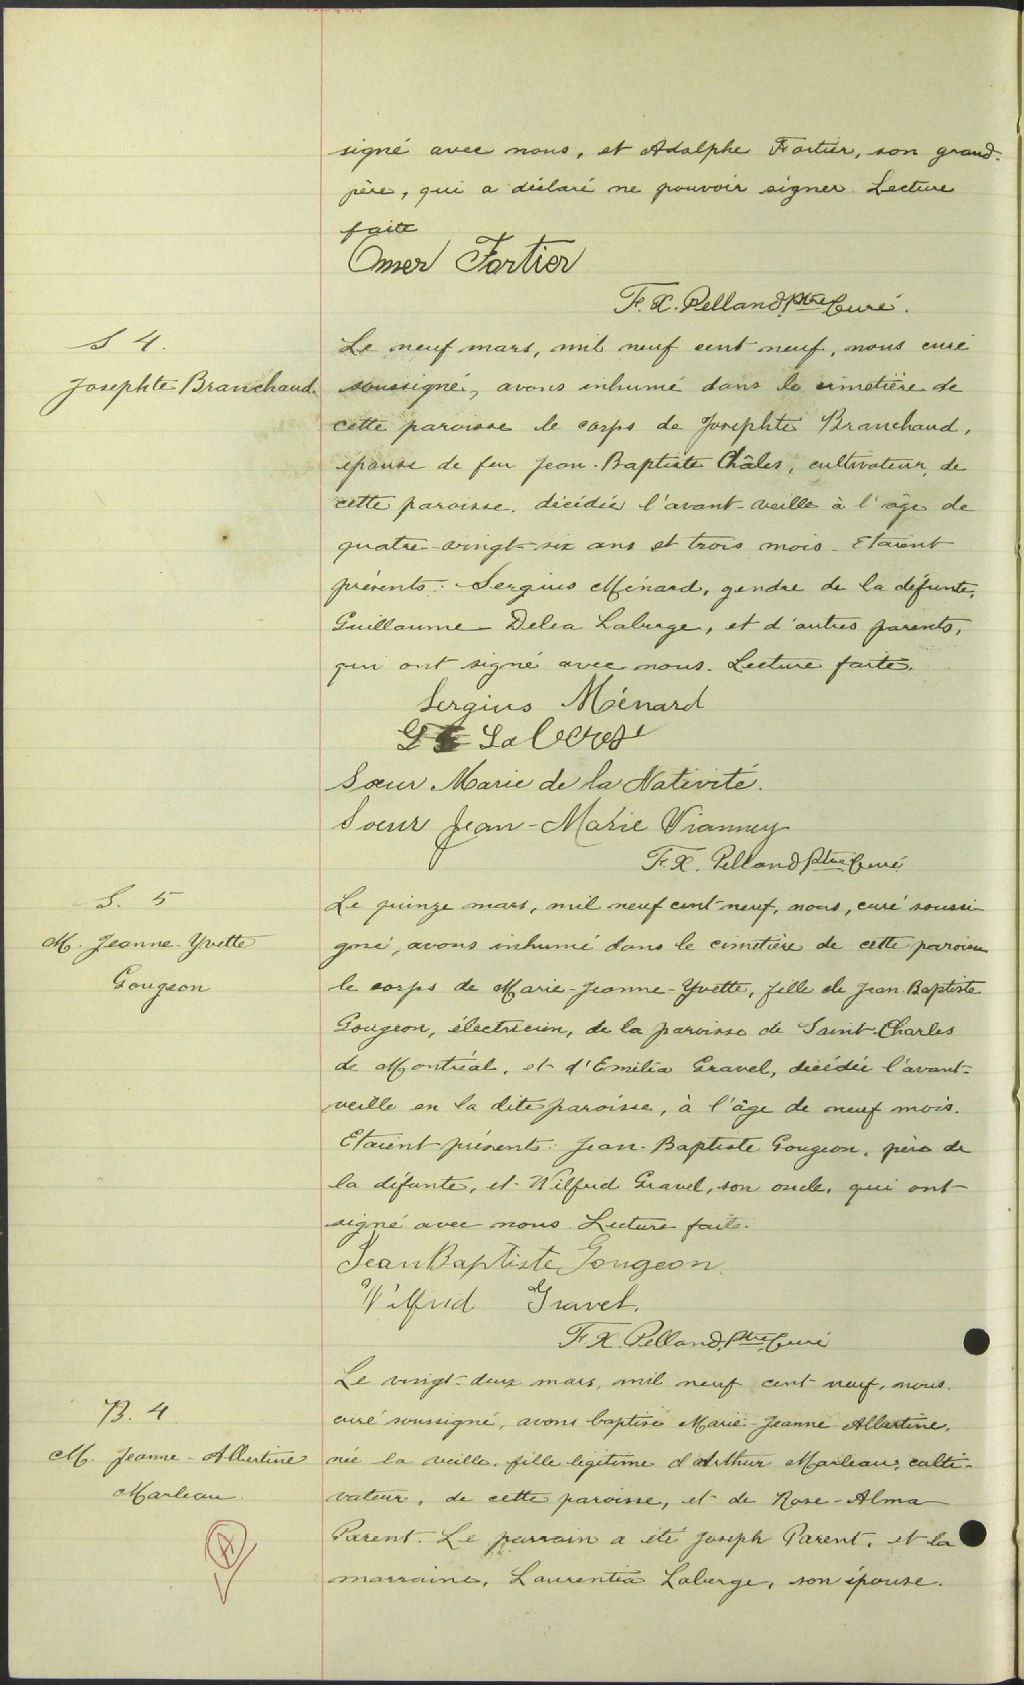 signé avec nous, et Adolphe Fortier, son grand-
père, qui a déclaré ne pouvoir signer. Lecture
faite
Omer Fortier
F. X. Pelland, Ptre Curé.
S 4.
Josephte Branchaud.
Le neuf mars, mil neuf cent neuf, nous curé
soussigné, avons inhumé dans le cimetière de
cette paroisse le corps de Josephte Branchaud,
épouse de feu Jean-Baptiste Châles, cultivateur, de
cette paroisse, décédée l'avant-veille à l'âge de
quatre-vingt-six ans et trois mois. Etaient
présents: Sergius Ménard, gendre de la défunte,
Guillaume Delea Laberge, et d'autres parents,
qui ont signé avec nous. Lecture faite.
Sergius Ménard
Sœur Marie de la Nativité.
Soeur Jean-Marie Vianney
F. X. Pelland Ptre Curé
S. 5
M. Jeanne-Yvette
Gougeon
Le quinze mars, mil neuf cent neuf, nous, curé soussi-
gné, avons inhumé dans le cimetière de cette paroisse
le corps de Marie-Jeanne-Yvette, fille de Jean-Baptiste
Gougeon, électricien, de la paroisse de Saint-Charles
de Montréal, et d'Emilia Gravel, décédée l'avant-
veille en la dite paroisse, à l'âge de neuf mois.
Etaient présents: Jean-Baptiste Gougeon, père de
la défunte, et Wilfrid Gravel, son oncle, qui ont
signé avec nous. Lecture faite.
Jean Baptiste Gougeon
Wilfrid Gravel.
F. X. Pelland, Ptre, Curé
B. 4
M. Jeanne-Albertine
Marleau.
Le vingt-deux mars, mil neuf cent neuf, nous,
curé soussigné, avons baptisé Marie-Jeanne Albertine,
née la veille, fille légitime d'Arthur Marleau, culti-
vateur, de cette paroisse, et de Rose-Alma
Parent. Le parrain a été Joseph Parent, et la
marraine, Laurentia Laberge, son épouse.